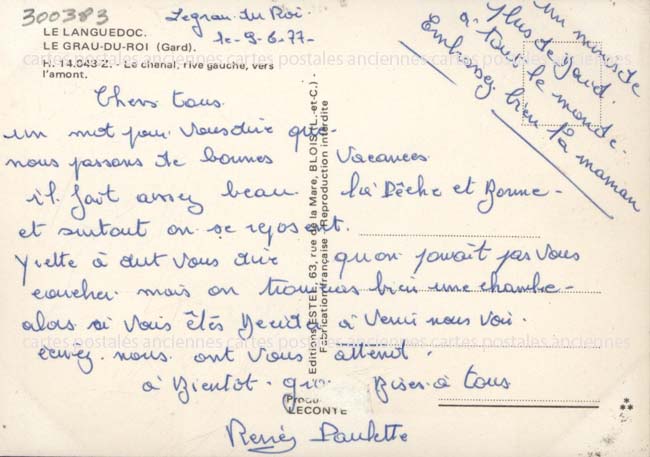 300383
Legrau.du Roi.
le-9-6-77-
LE LANGUEDOC.
LE GRAU-DU-ROI (Gard).
H. 14.043 Z. - Le chenal, rive gauche, vers
l'amont.
un
plus de
à tout le monde.
Embrassez bien la maman
Chers tous
un mot pour vous dire que
nous passons de bonnes Vacances
il fait assez beau la Pêche et Bonne-
et surtout on se repose.
Yvette à dut vous dire qu'on pouvait pas vous
coucher mais on trouveras bien une chambre-
alors si vous êtes décidés à venir nous voir.
écrivez nous ont vous attend.
à Bientôt. Bises à tous
Paulette
Editions ESTEL, 63, rue de la Mare, BLOIS (L.-et-C.)
Fabrication française - Reproduction interdite
Produ
LECONTE
cartes postales anciennes cartes postales anciennes cartes postales anciennes
cartes postales anciennes cartes postales anciennes cartes postales anciennes